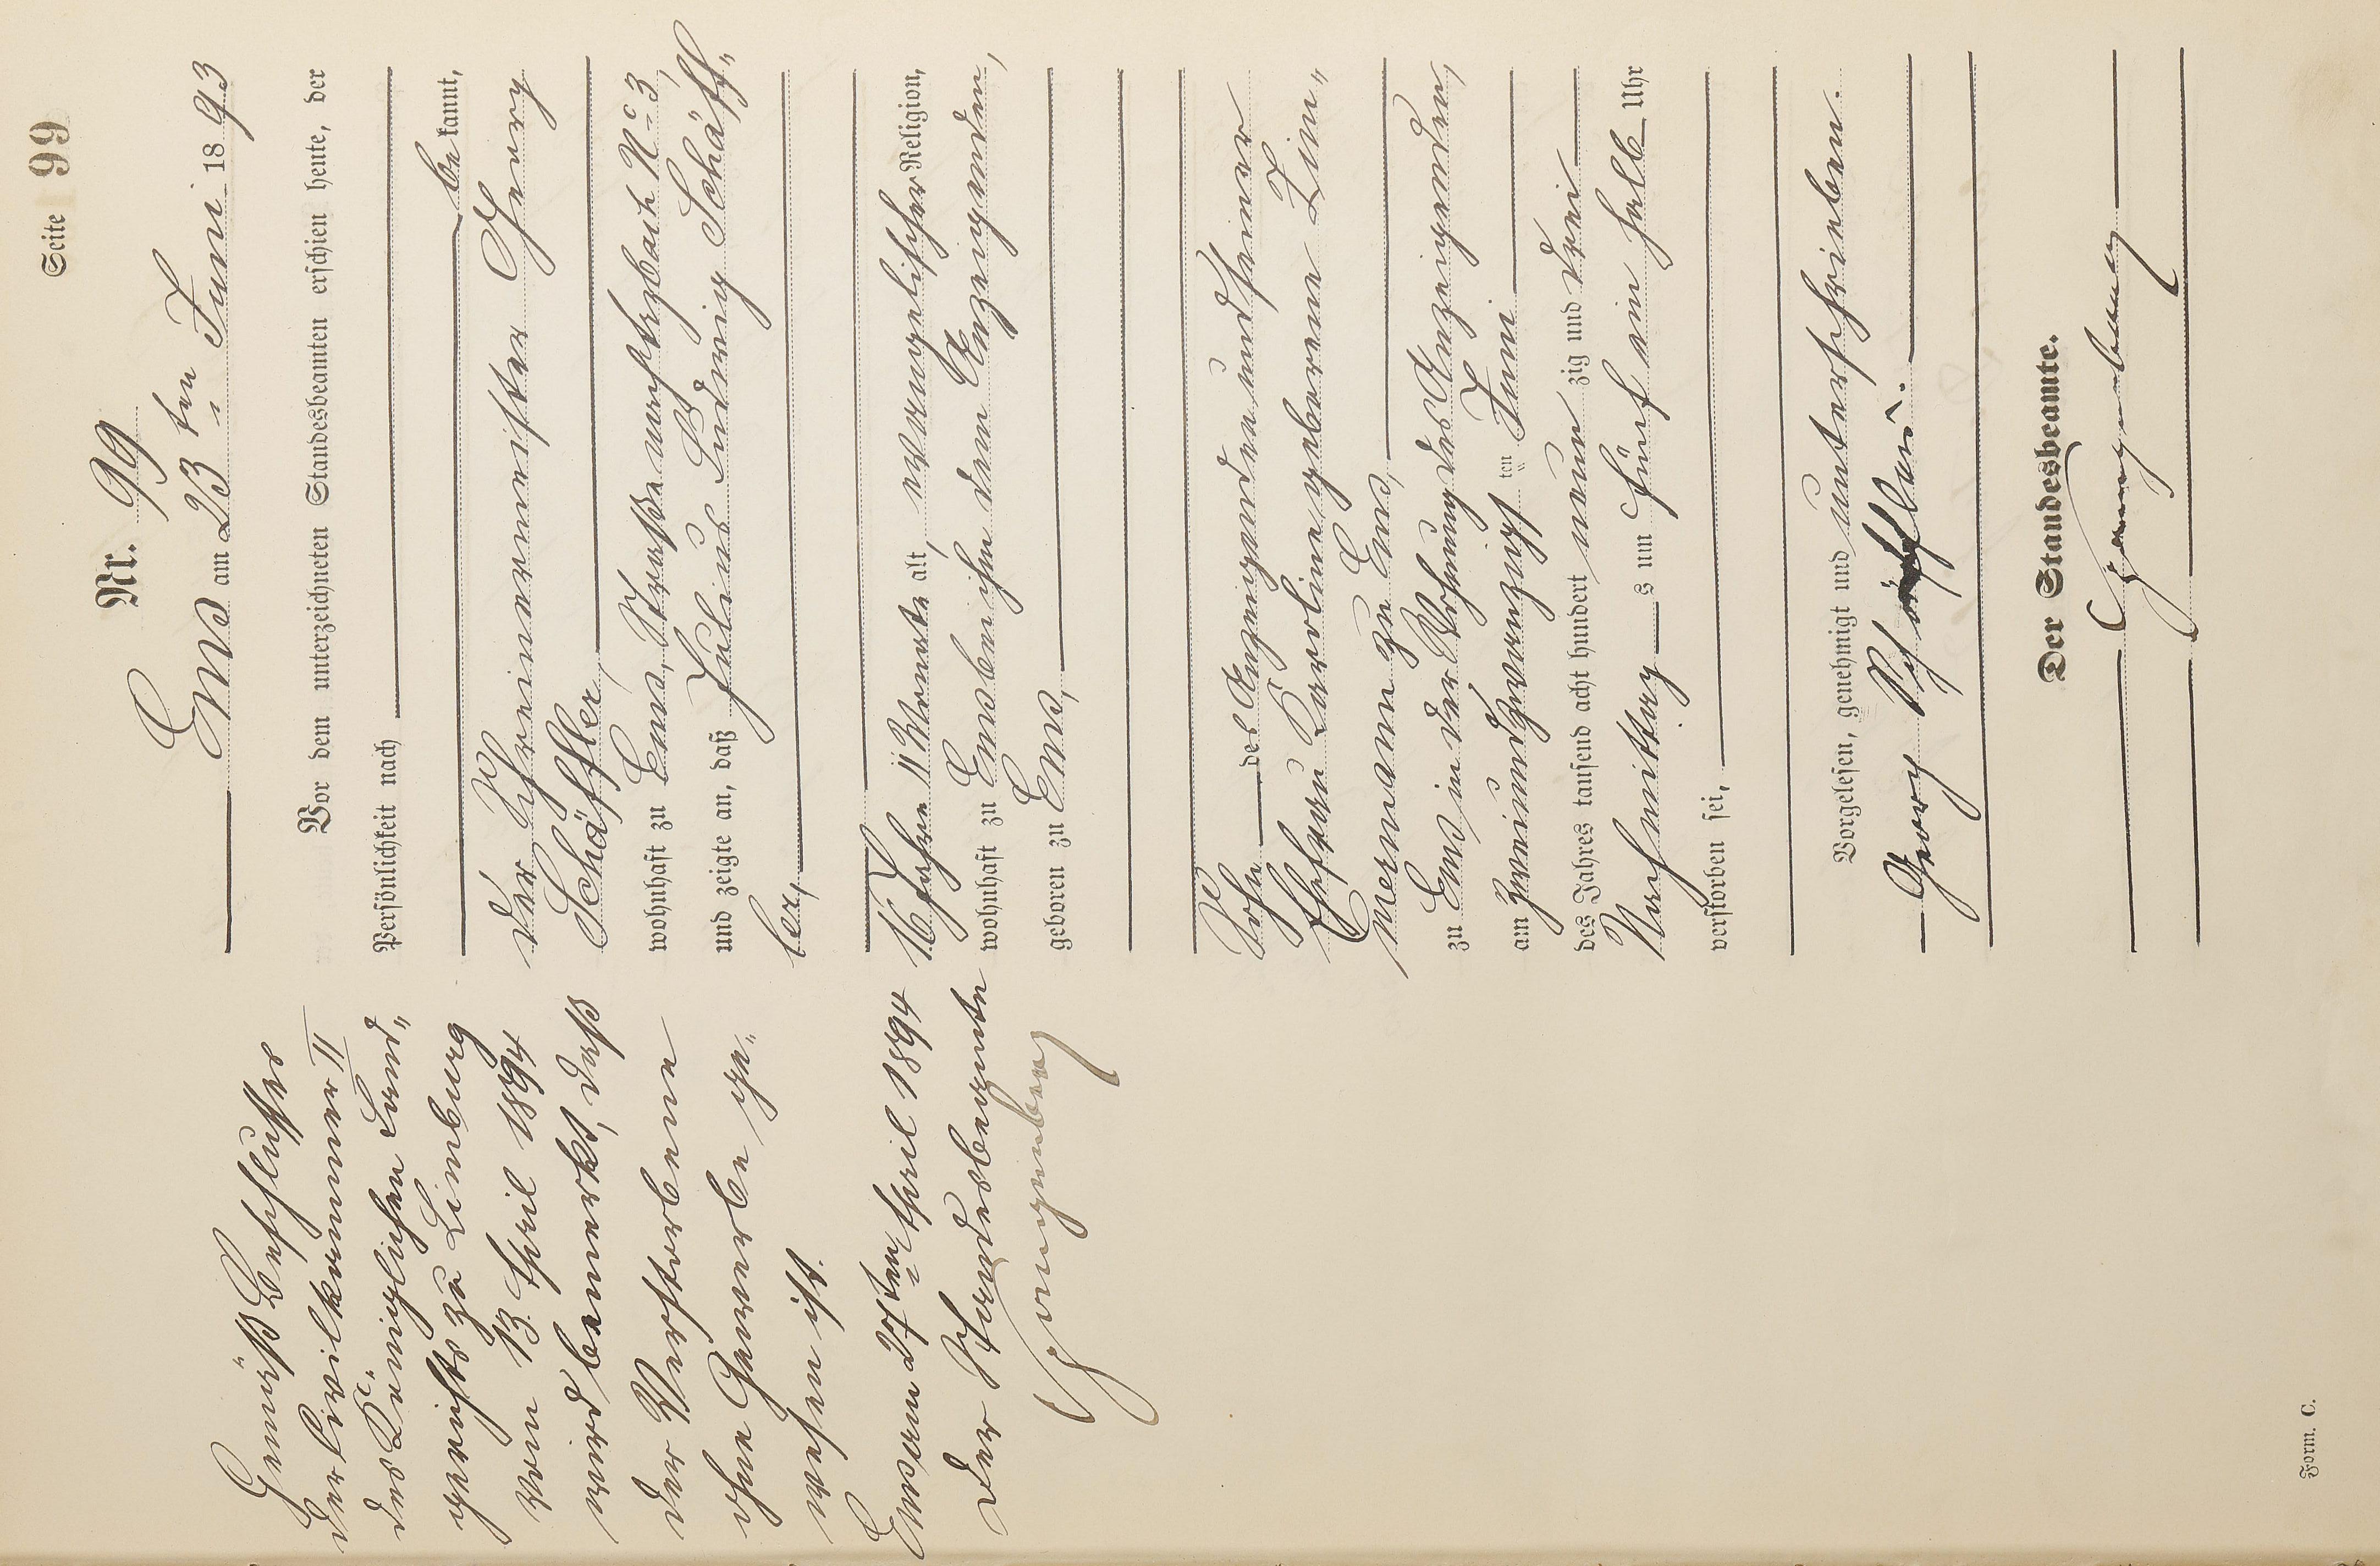 Seite 99
Nr. 99
Ems am 23ten Juni 1893
Vor dem unterzeichneten Standesbeamten erschien heute, der
Persönlichkeit nach
bekannt,
der Schreinermeister Georg
Schäffler,
wohnhaft zu Ems, Straße nach N° 3,
und zeigte an, daß Julius Ludwig Schäff„
ler,
16 Jahre 11 Monate alt, evangelischer Religion,
wohnhaft zu Ems bei ihm dem Anzeigenden,
geboren zu Ems,
Sohn des Anzeigenden und seiner
Ehefrau Karoline geborene Zim„
mermann zu Ems,
zu Ems in der Wohnung des Anzeigenden,
am zweiundzwanzigsten Juni
des Jahres tausend acht hundert neunzig und drei
Nachmittags um fünf ein halb Uhr
verstorben sei,
Vorgelesen, genehmigt und unterschrieben.
Georg Schäffler.
Der Standesbeamte.
Gemäß Beschlusses
der Civilkammer II
des Königlichen Land„
gerichts zu Limburg
vom 13. April 1894
wird bemerkt, daß
der Verstorbene
ohne Gewerbe ge„
wesen ist.
Ems am 27ten April 1894
Der Standesbeamte
Form. C.